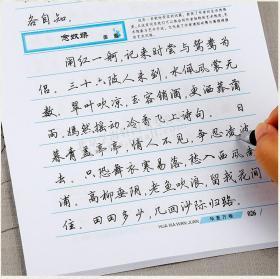 各自知。
念奴娇 姜夔
闹红一舸,记来时尝与鸳鸯为
侣。三十六陂人未到,水佩风裳无
数。翠叶吹凉,玉容销酒,更洒菰蒲
雨。嫣然摇动,冷香飞上诗句。 日
暮青盖亭亭,情人不见,争忍凌波
去。只恐舞衣寒易落,愁入西风南
浦。高柳垂阴,老鱼吹浪,留我花间
住。田田多少,几回沙际归路。
HUA XIA WAN JUAN 华夏万卷 026